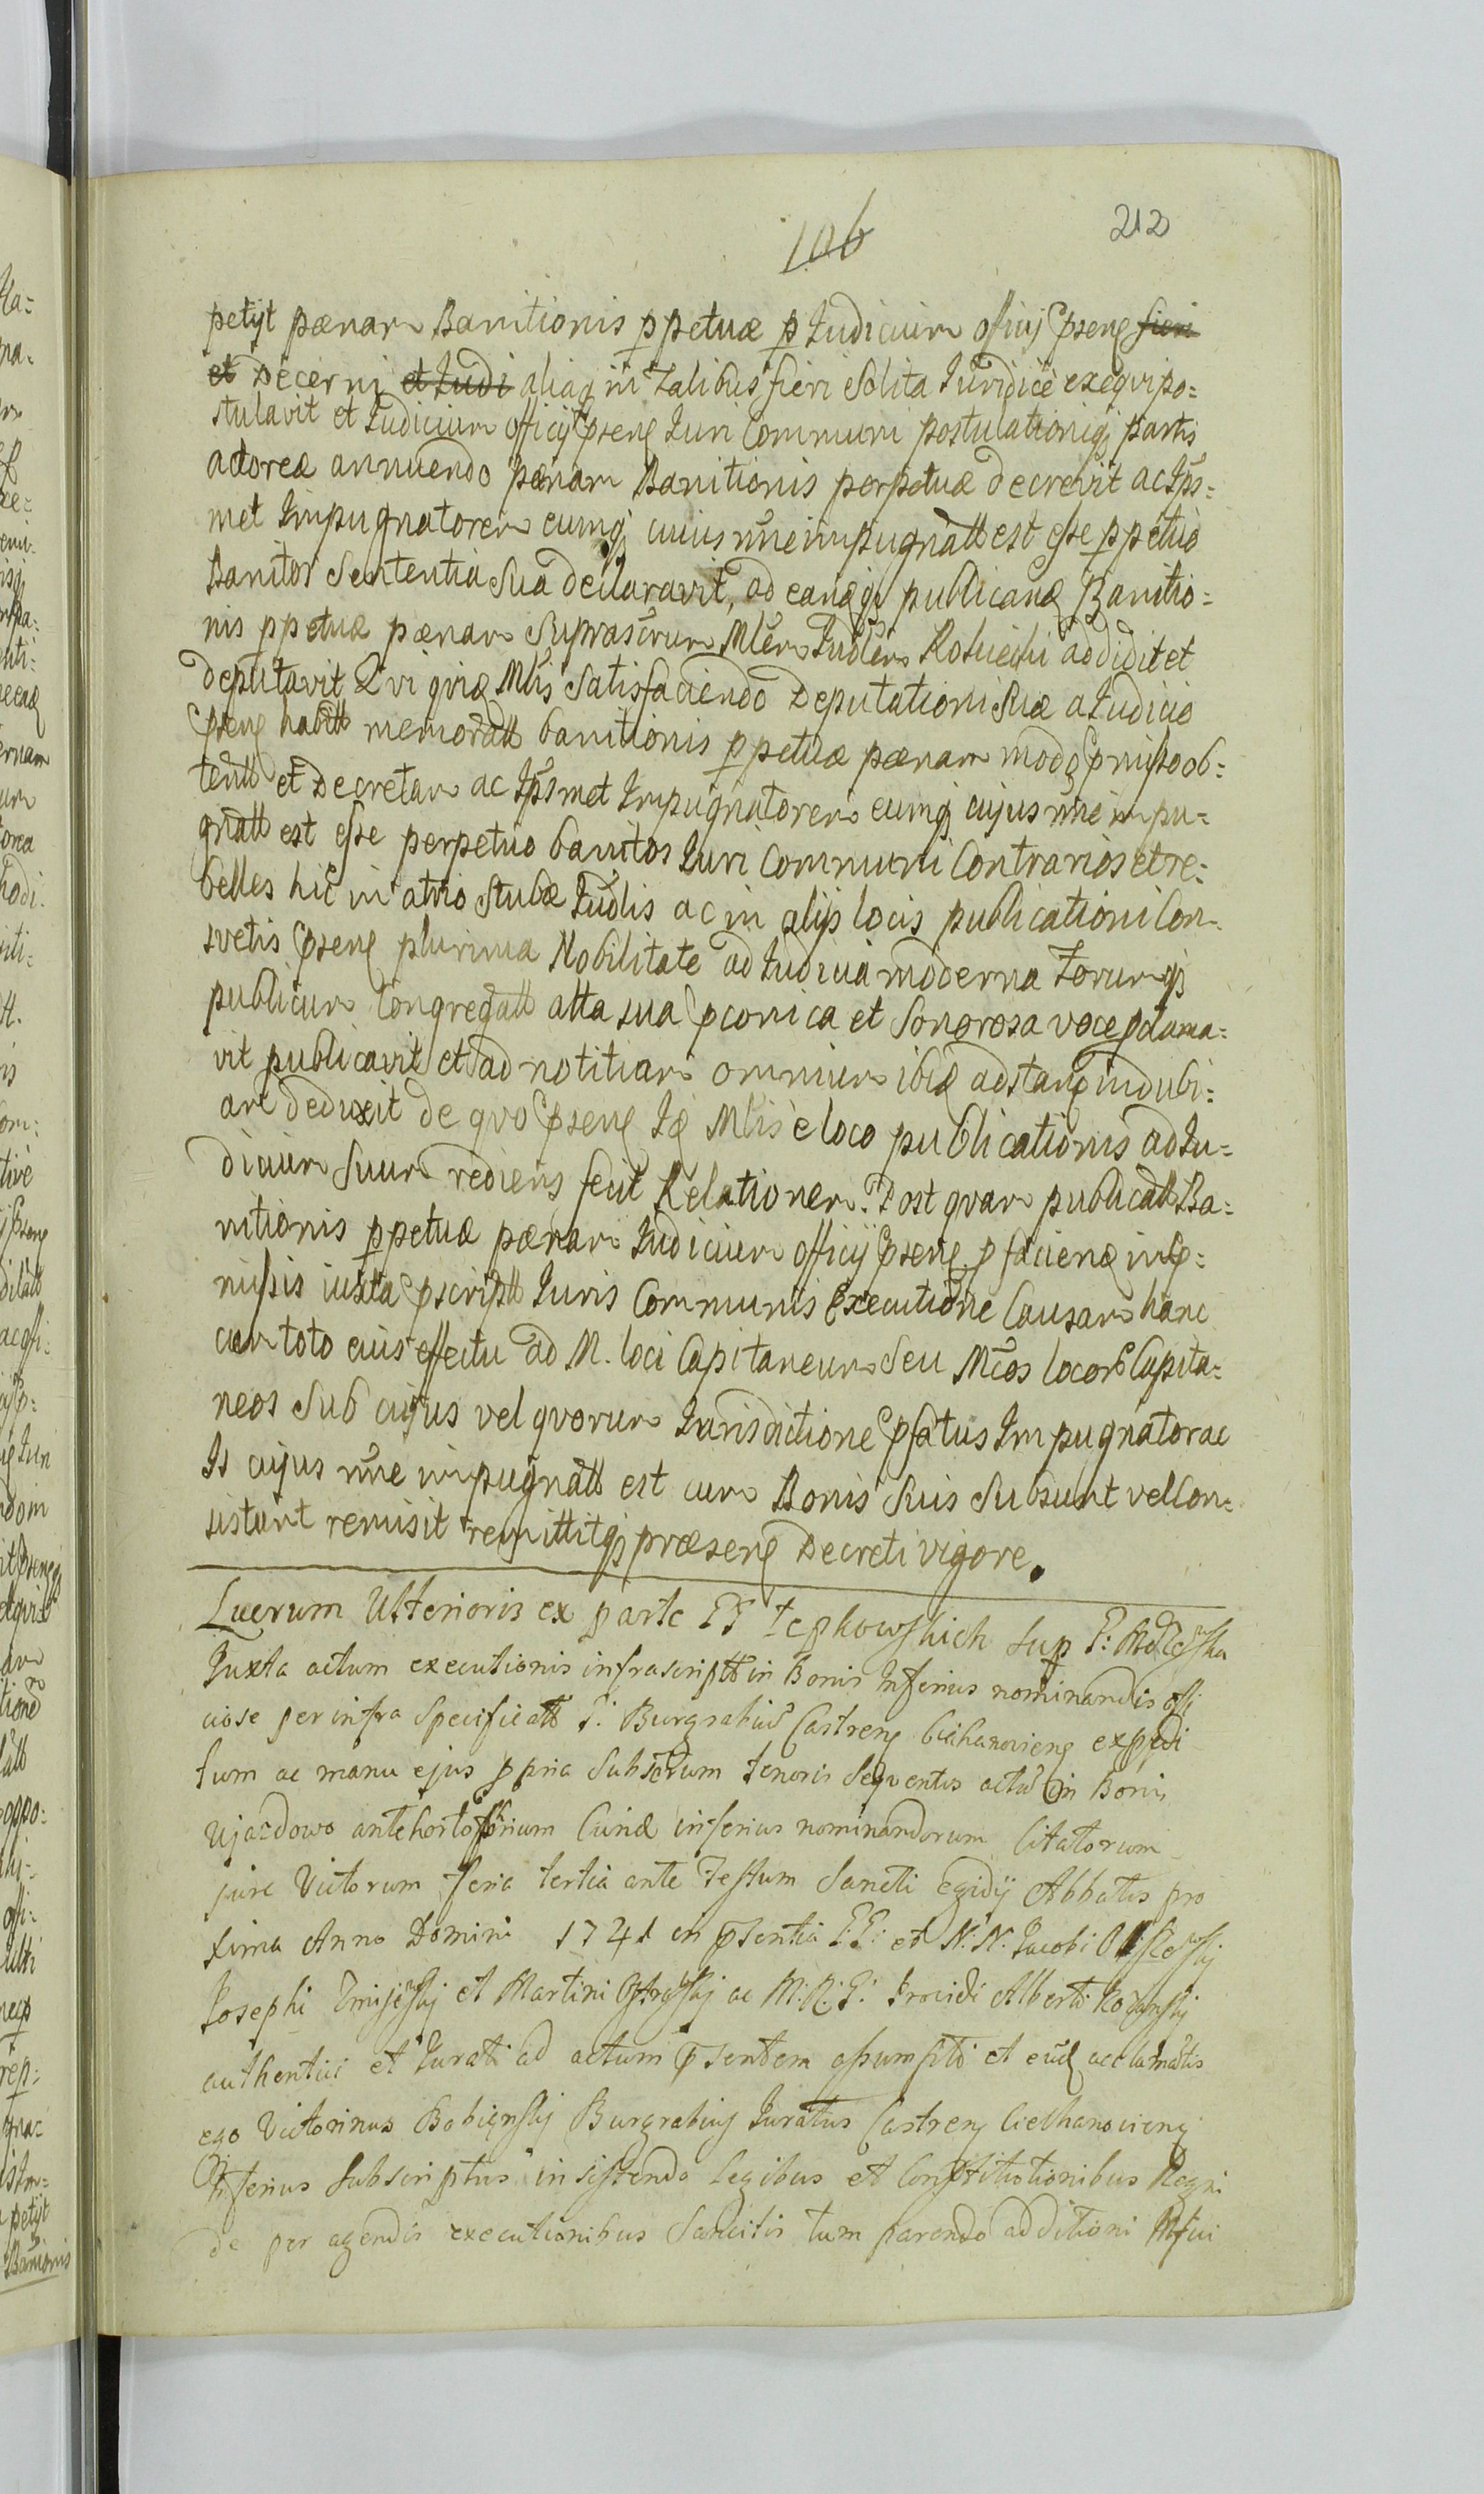 106
212
petijt pœnam Banitionis ppetuæ p Iudicium officij Pseng fieri
et Decerni et Iudi aliaq in Talibus fieri Solita Iuridicè exeqvi po=
stulavit et Iudicium officij Pseng Iuri Communi postulationiqȝ partis
actoreæ annuendo pænam Banitionis perpetuæ decrevit ac Ips=
met Impugnatorem eumqȝ cuius nne impugnatt est esse ppetuò
Banitos Sententia Sua declaravit, ad eandqȝ publicand Banitio=
nis ppetuæ pænam Suprascrum Mlem Iudlem Kotuechi addidit et
deputavit Qvi qvid Mlis Satisfaciendo Deputationi Suæ a Iudicio
Pseng habitt memoratt banitionis ppetuæ pænam modo pmisso ob=
tentt et Decretam ac Ipsmet Impugnatorem eumqȝ cujus nne impu=
gnatt est esse perpetuo banitos Iuri Communi Contrarios et re=
belles hic in atrio Stubæ Iudlis ac in alijs locis publicationi Con=
svetis Pseng plurima Nobilitate ad Iudicia moderna Forumqȝ
publicum Congregatt alta sua pconica et Sonorosa voce pclama=
vit publicavit et ad notitiam omnium ibid adstang indubi=
am deduxit de qvo Pseng Id Mlis è loco publicationis ad Iu=
dicium Suum rediens fecit Relationem. Post qvam publicatt Ba=
nitionis ppetuæ pænam Iudicium officij Pseng p faciend insp=
missis iuxta pscriptt Iuris Communis Executione Causam hanc
cum toto eius effectu ad M. loci Capitaneum Seu Mcos locorum Capita=
neos Sub cujus vel qvorum Iurisdictione Pfatus Impugnator ac
Is cujus nne impugnatt est cum Bonis Suis Subsunt vel Con=
sistunt remisit remittitqȝ præseng Decreti vigore.
Lucrum Ulterioris ex parte PP Łępkowskich sup P:
Iuxta actum executionis infrascriptt in Bonis Inferius nominandis offi
ciose per infra Specificatt P. Burgrabiu Castreng Ciechanovieng expedi
tum ac manu ejus ppria Subscrum tenoris Seqventis actu in Bonis
Ujazdowo antehortoforium Curiæ inferius nominandorum Citatorum
jure Victorum feria tertia ante Festum Sancti Egidij Abbatis pro
xima Anno Domini 1741 in psentia P.P: et N: N. Jacobi
Josephi Zmijewskj et Martini Ostrowskj ac M: R: P: Providi Alberti
authentici et Iurati ad actum psentem assumpti et eid acclamatis
ego Victorinus Bobienskj Burgrabius Iuratus Castreng Ciechanovieng
Inferius Subscriptus insistendo legibus et Constitutionibus Regni
de per agendis executionibus Sancitis tum parendo additioni Mfici